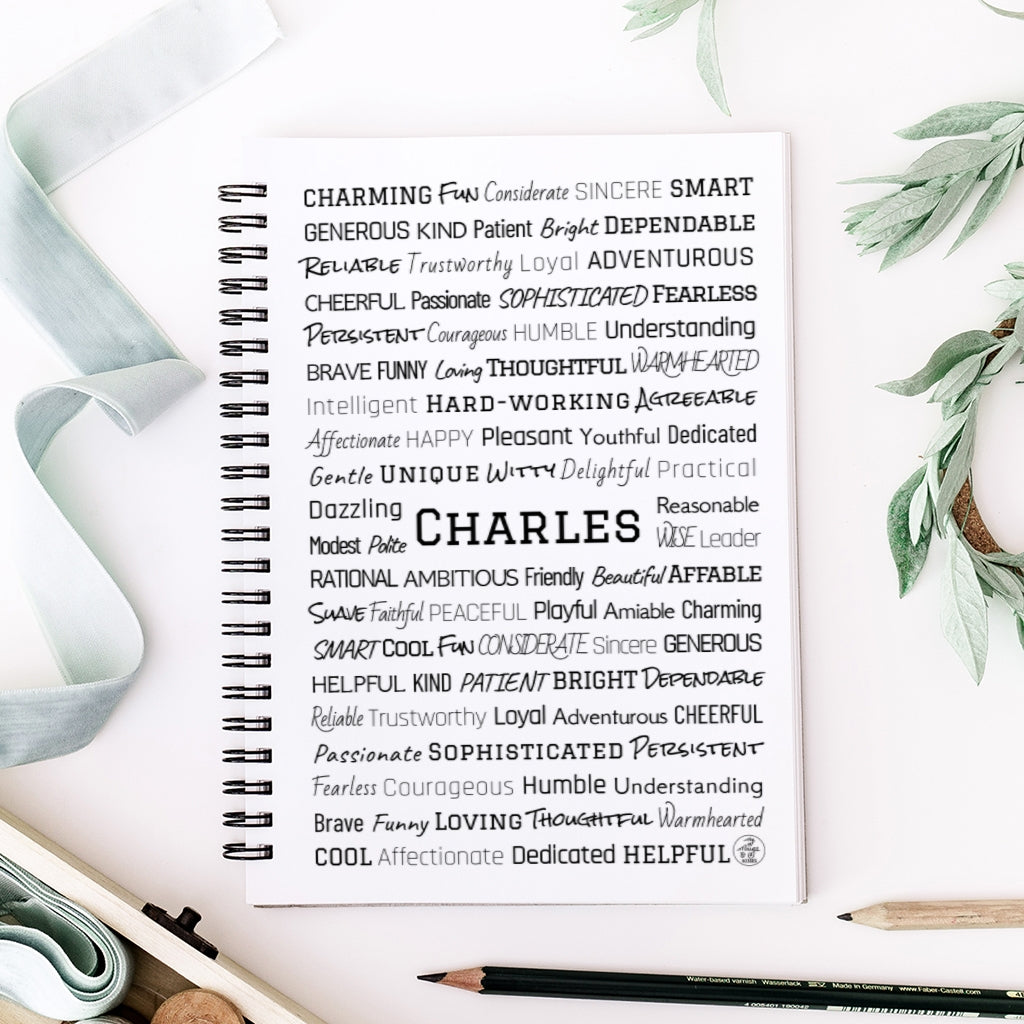 CHARMING FUN Considerate SINCERE SMART
GENEROUS KIND Patient Bright DEPENDABLE
RELIABLE Trustworthy Loyal ADVENTUROUS
CHEERFUL Passionate SOPHISTICATED FEARLESS
PERSISTENT Courageous HUMBLE Understanding
BRAVE FUNNY Loving THOUGHTFUL WARMHEARTED
Intelligent HARD-WORKING AGREEABLE
Affectionate HAPPY Pleasant Youthful Dedicated
Gentle UNIQUE WITTY Delightful Practical
Dazzling
Modest Polite
CHARLES
Reasonable
WISE Leader
RATIONAL AMBITIOUS Friendly Beautiful AFFABLE
SUAVE Faithful PEACEFUL Playful Amiable Charming
SMART COOL FUN CONSIDERATE Sincere GENEROUS
HELPFUL KIND PATIENT BRIGHT DEPENDABLE
Reliable Trustworthy Loyal Adventurous CHEERFUL
Passionate SOPHISTICATED PERSISTENT
Fearless Courageous Humble Understanding
Brave Funny LOVING THOUGHTFUL Warmhearted
COOL Affectionate Dedicated HELPFUL
Water-based varnish Wasserlack SV Made in Germany www.Faber-Castell.com